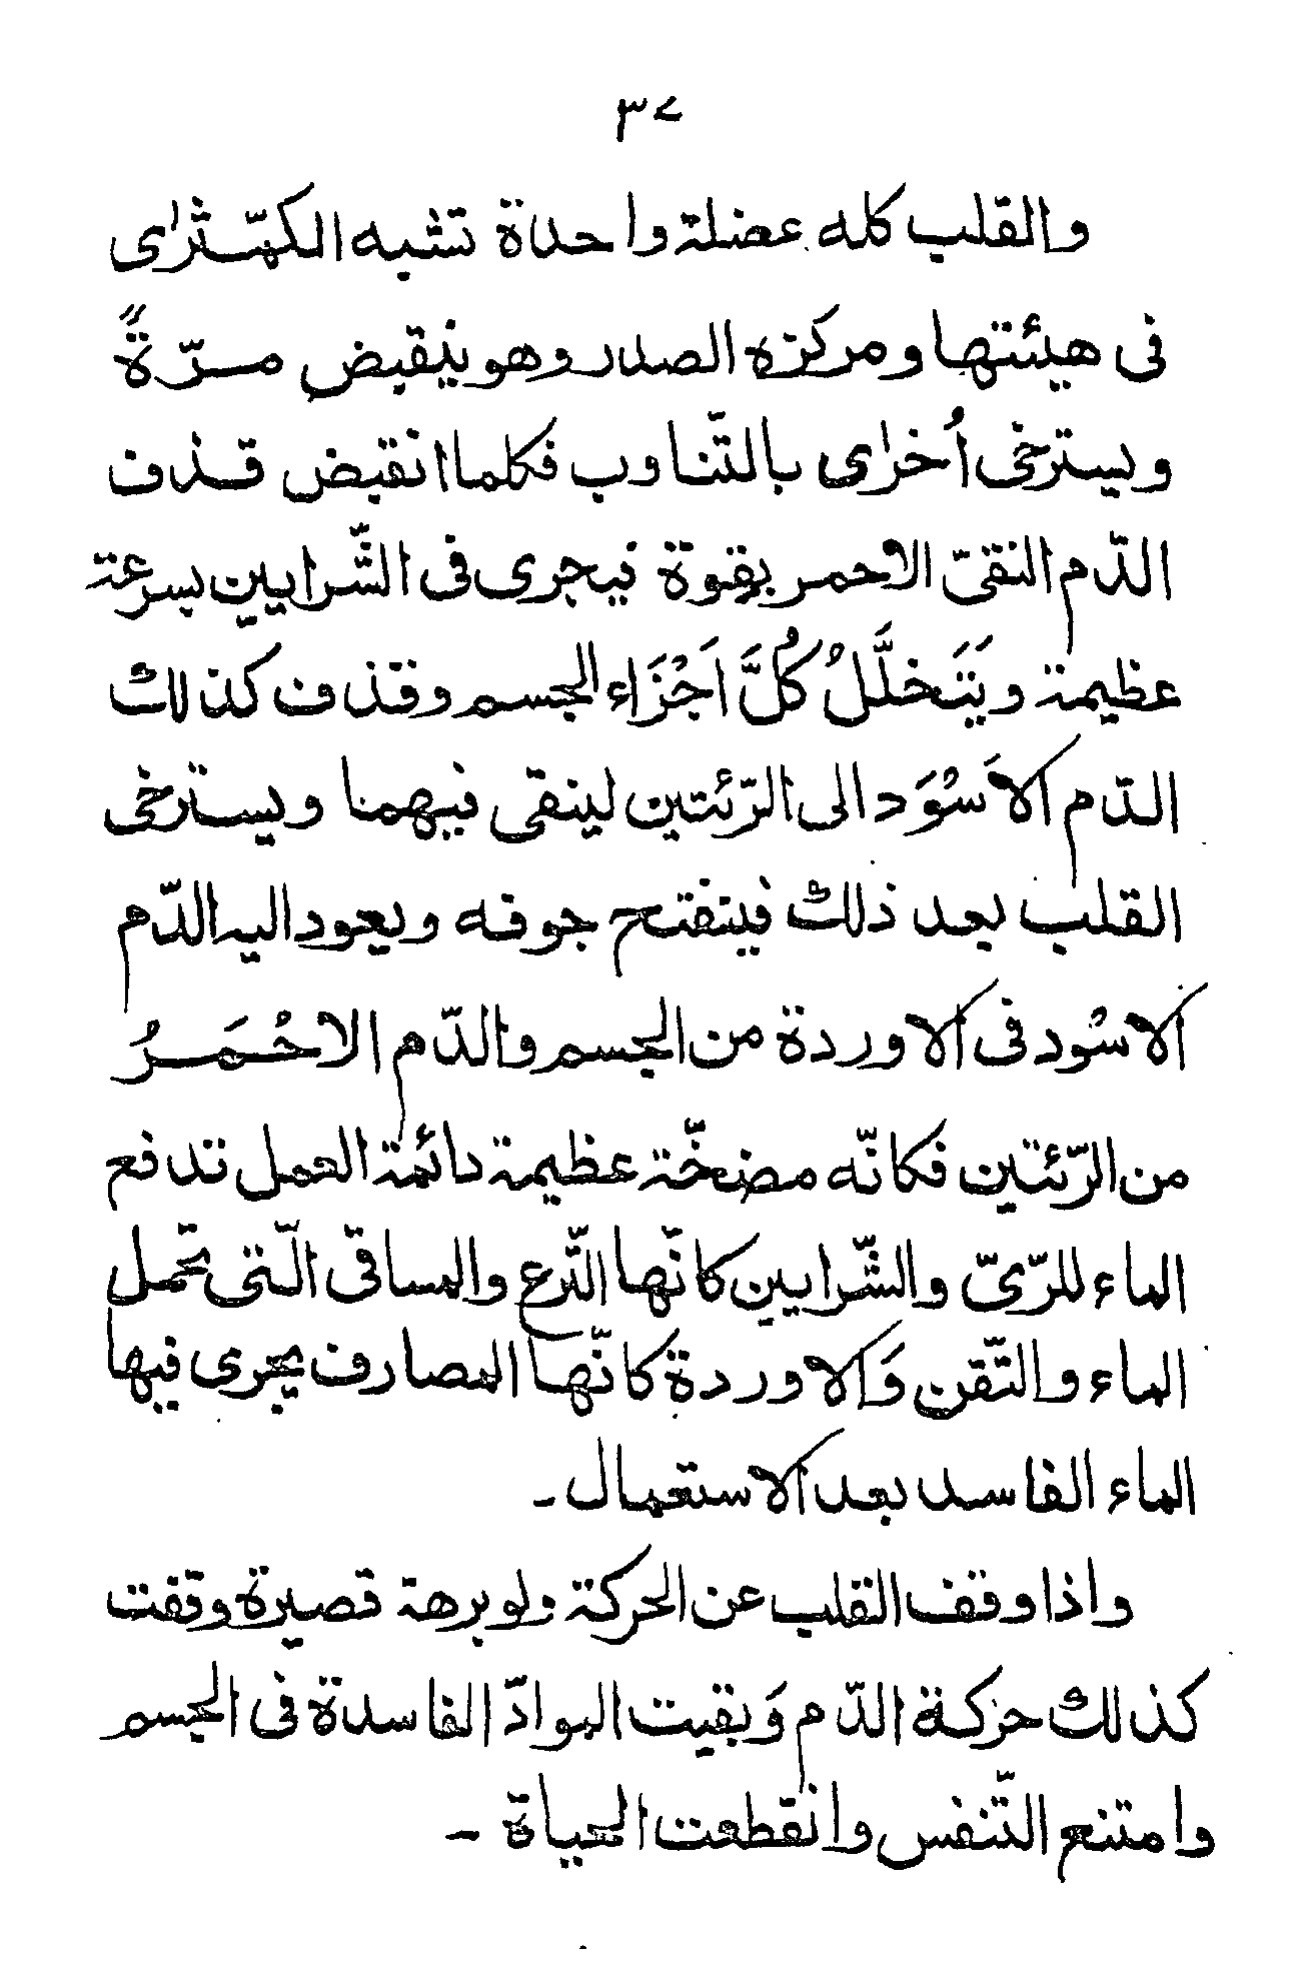 ٣٧
والقلب كله عضلة واحدة تشبه الكمّثرٰى
فى هيئتها ومركزه الصدر وهو ينقبض مرّةً
ويسترخى اُخرٰى بالتّناوب فكلما انقبض قذف
الدّم النقىّ الاحمر بقوة فيجرى فى الشّرايين بسرعة
عظيمة ويَتَخلَّلُ كُلَّ اَجْزَاء الجسم وقذف كذلك
الدّم الاَسْوَد الى الرّئتين لينقى فيهما ويسترخى
القلب بعد ذلك فينفتح جوفه ويعود اليه الدّم
الاسْود فى الاوردة من الجسم والدّم الاحْمَرُ
من الرّئتين فكانّه مضخّة عظيمة دائمة العمل تدفع
الماء للرّىّ والشّرايين كانّها التّرع والمساقى الّتى تحمل
الماء والتّقن وَالاوردة كانّها المصارف يجرى فيها
الماء الفاسد بعد الاستعمال ـ
واذا وقف القلب عن الحركة ولو برهة قصيرة وقفت
كذلك حركة الدّم وَبقيت الموادّ الفاسدة فى الجسم
وامتنع التّنفس وانقطعت الحياة ـ